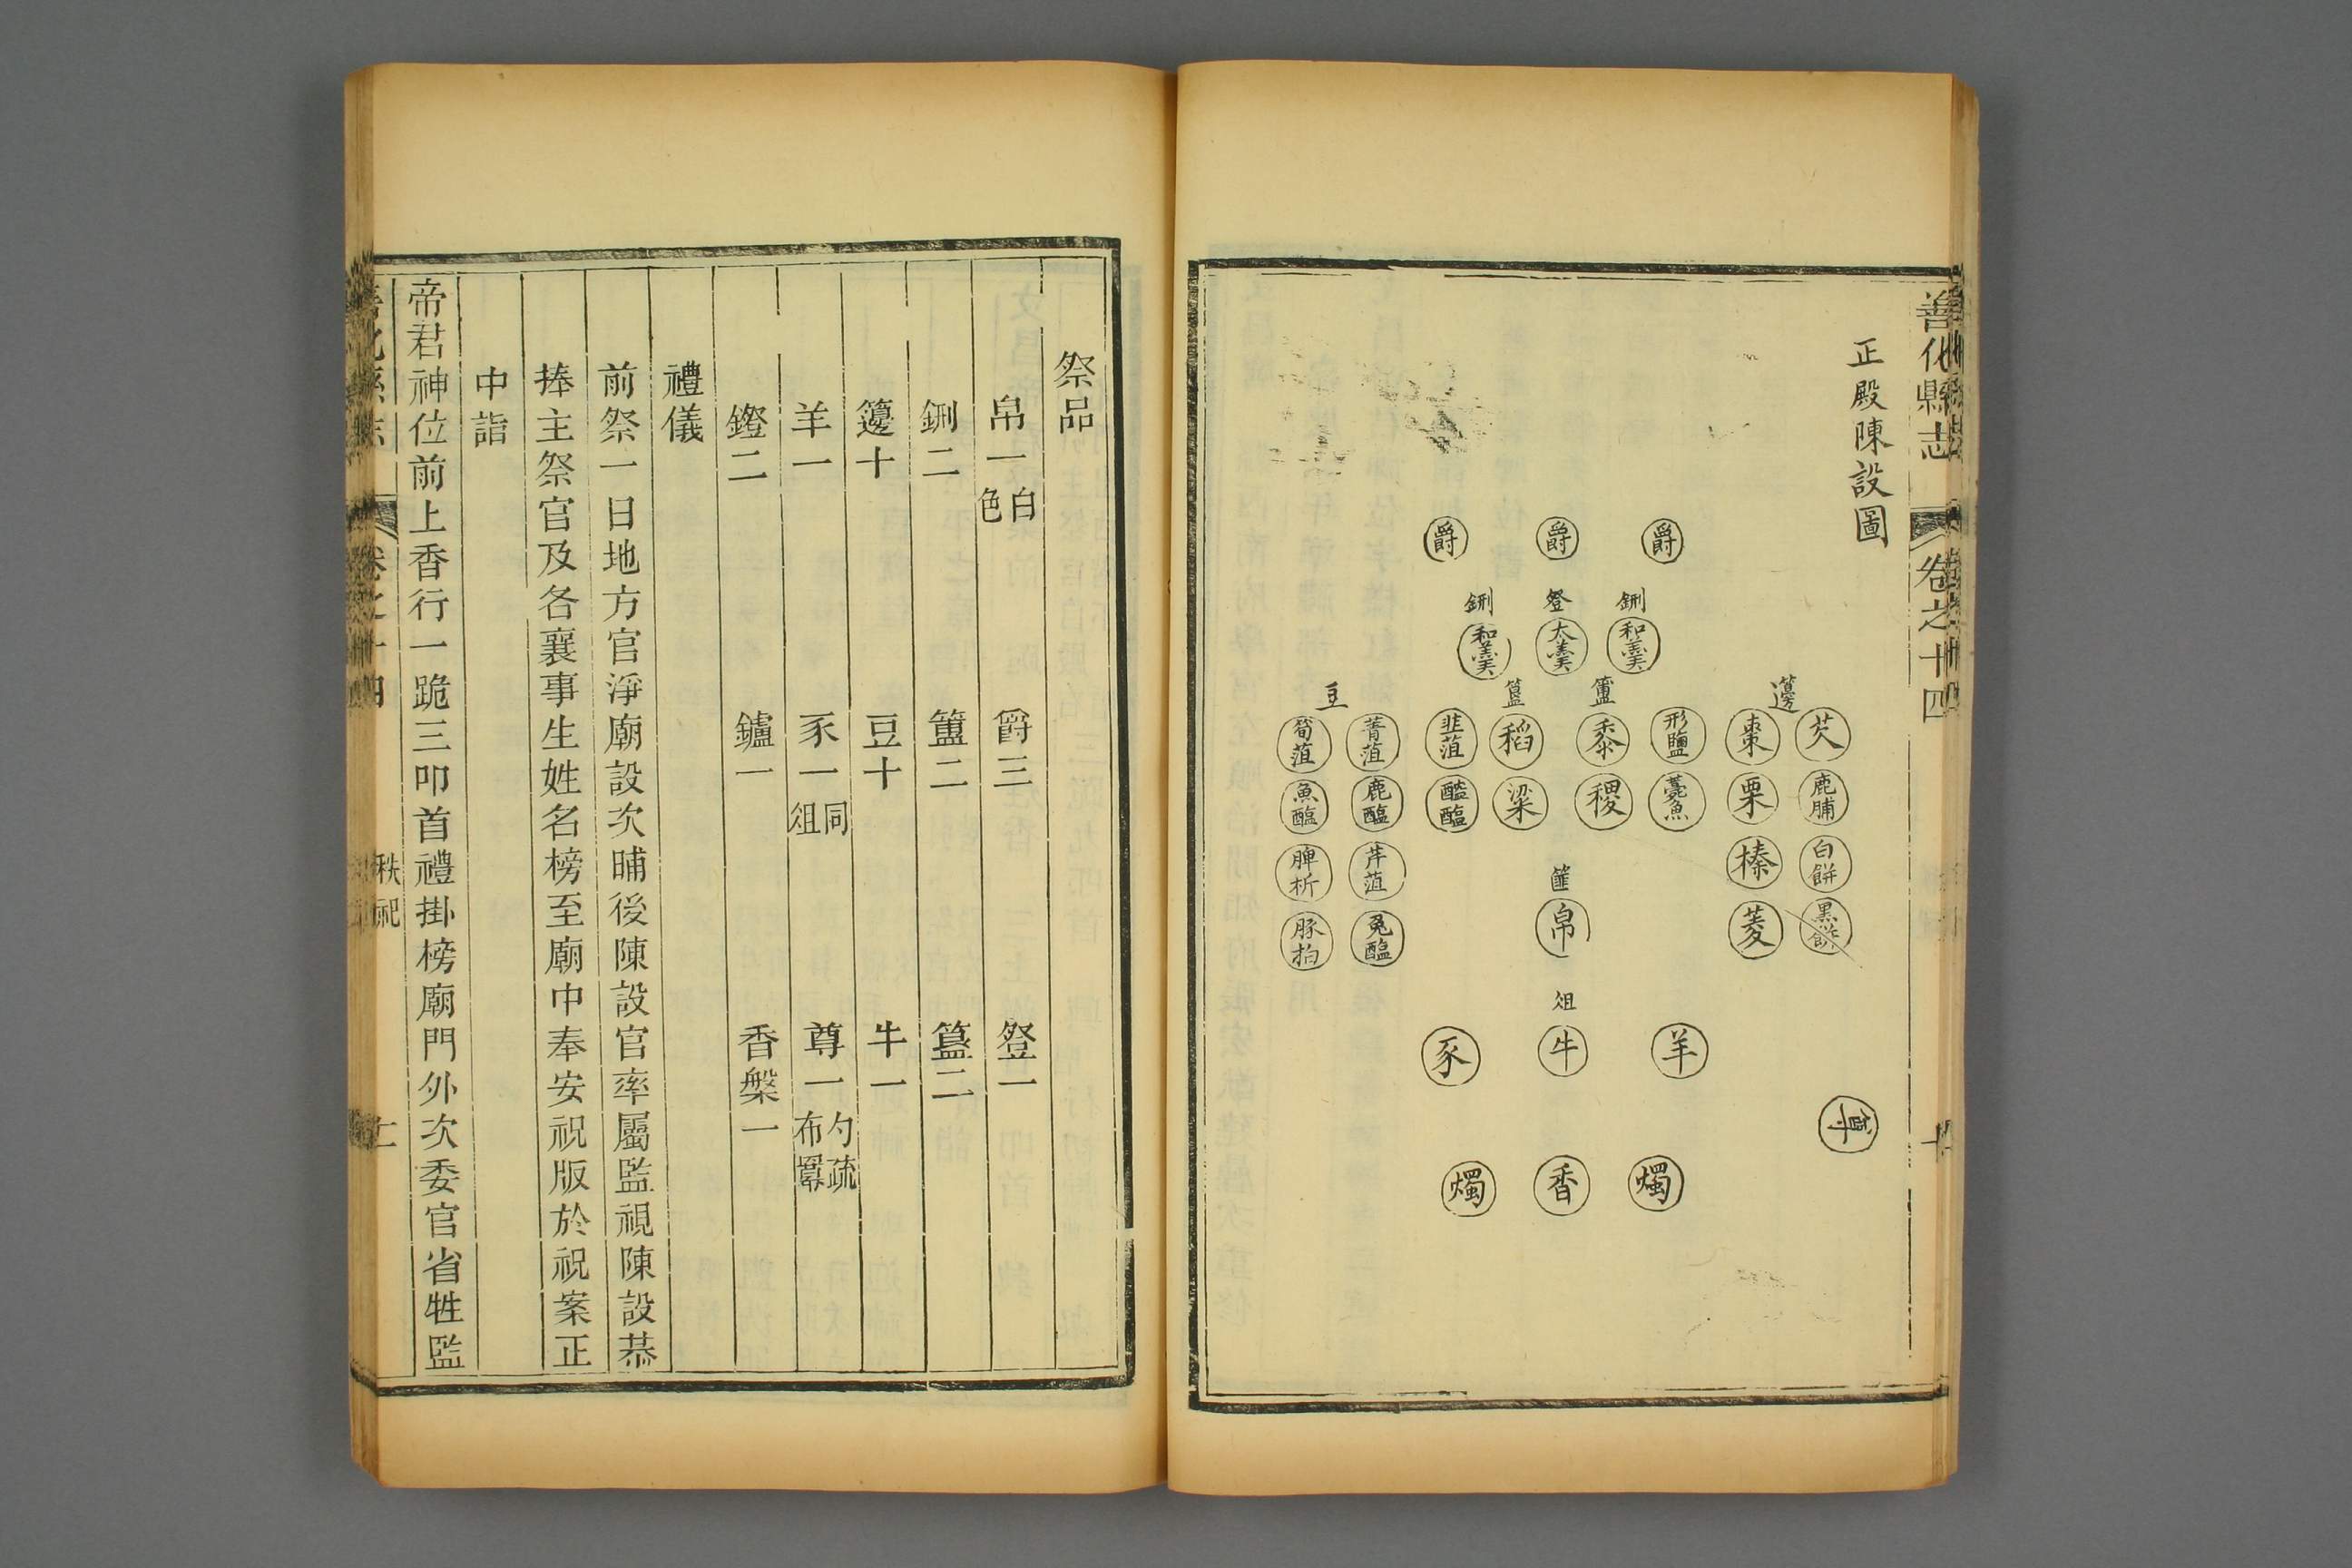 善化縣志
卷之十四
正殿陳設圖
爵
爵
爵
鉶
登
鉶
和羹
太羹
和羹
籩
簠
簋
豆
芡
棗
形鹽
黍
稻
韭菹
菁菹
筍菹
鹿脯
栗
薧魚
稷
粱
醓醢
鹿醢
魚醢
白餅
榛
芹菹
脾析
黑餅
菱
篚
帛
兔醢
豚拍
俎
羊
牛
豕
尊
燭
香
燭
祭品
帛一白色 爵三 登一
鉶二 簠二 簋二
籩十 豆十 牛一
羊一 豕一同俎 尊一勺疏布羃
鐙二 鑪一 香槃一
禮儀
前祭一日地方官淨廟設次晡後陳設官率屬監視陳設恭
捧主祭官及各襄事生姓名榜至廟中奉安祝版於祝案正
中詣
帝君神位前上香行一跪三叩首禮掛榜廟門外次委官省牲監
秩祀